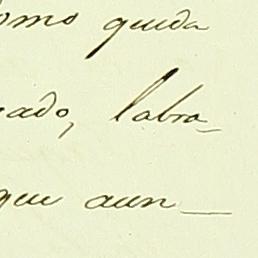 omo queda
cado, labra-
que aun—